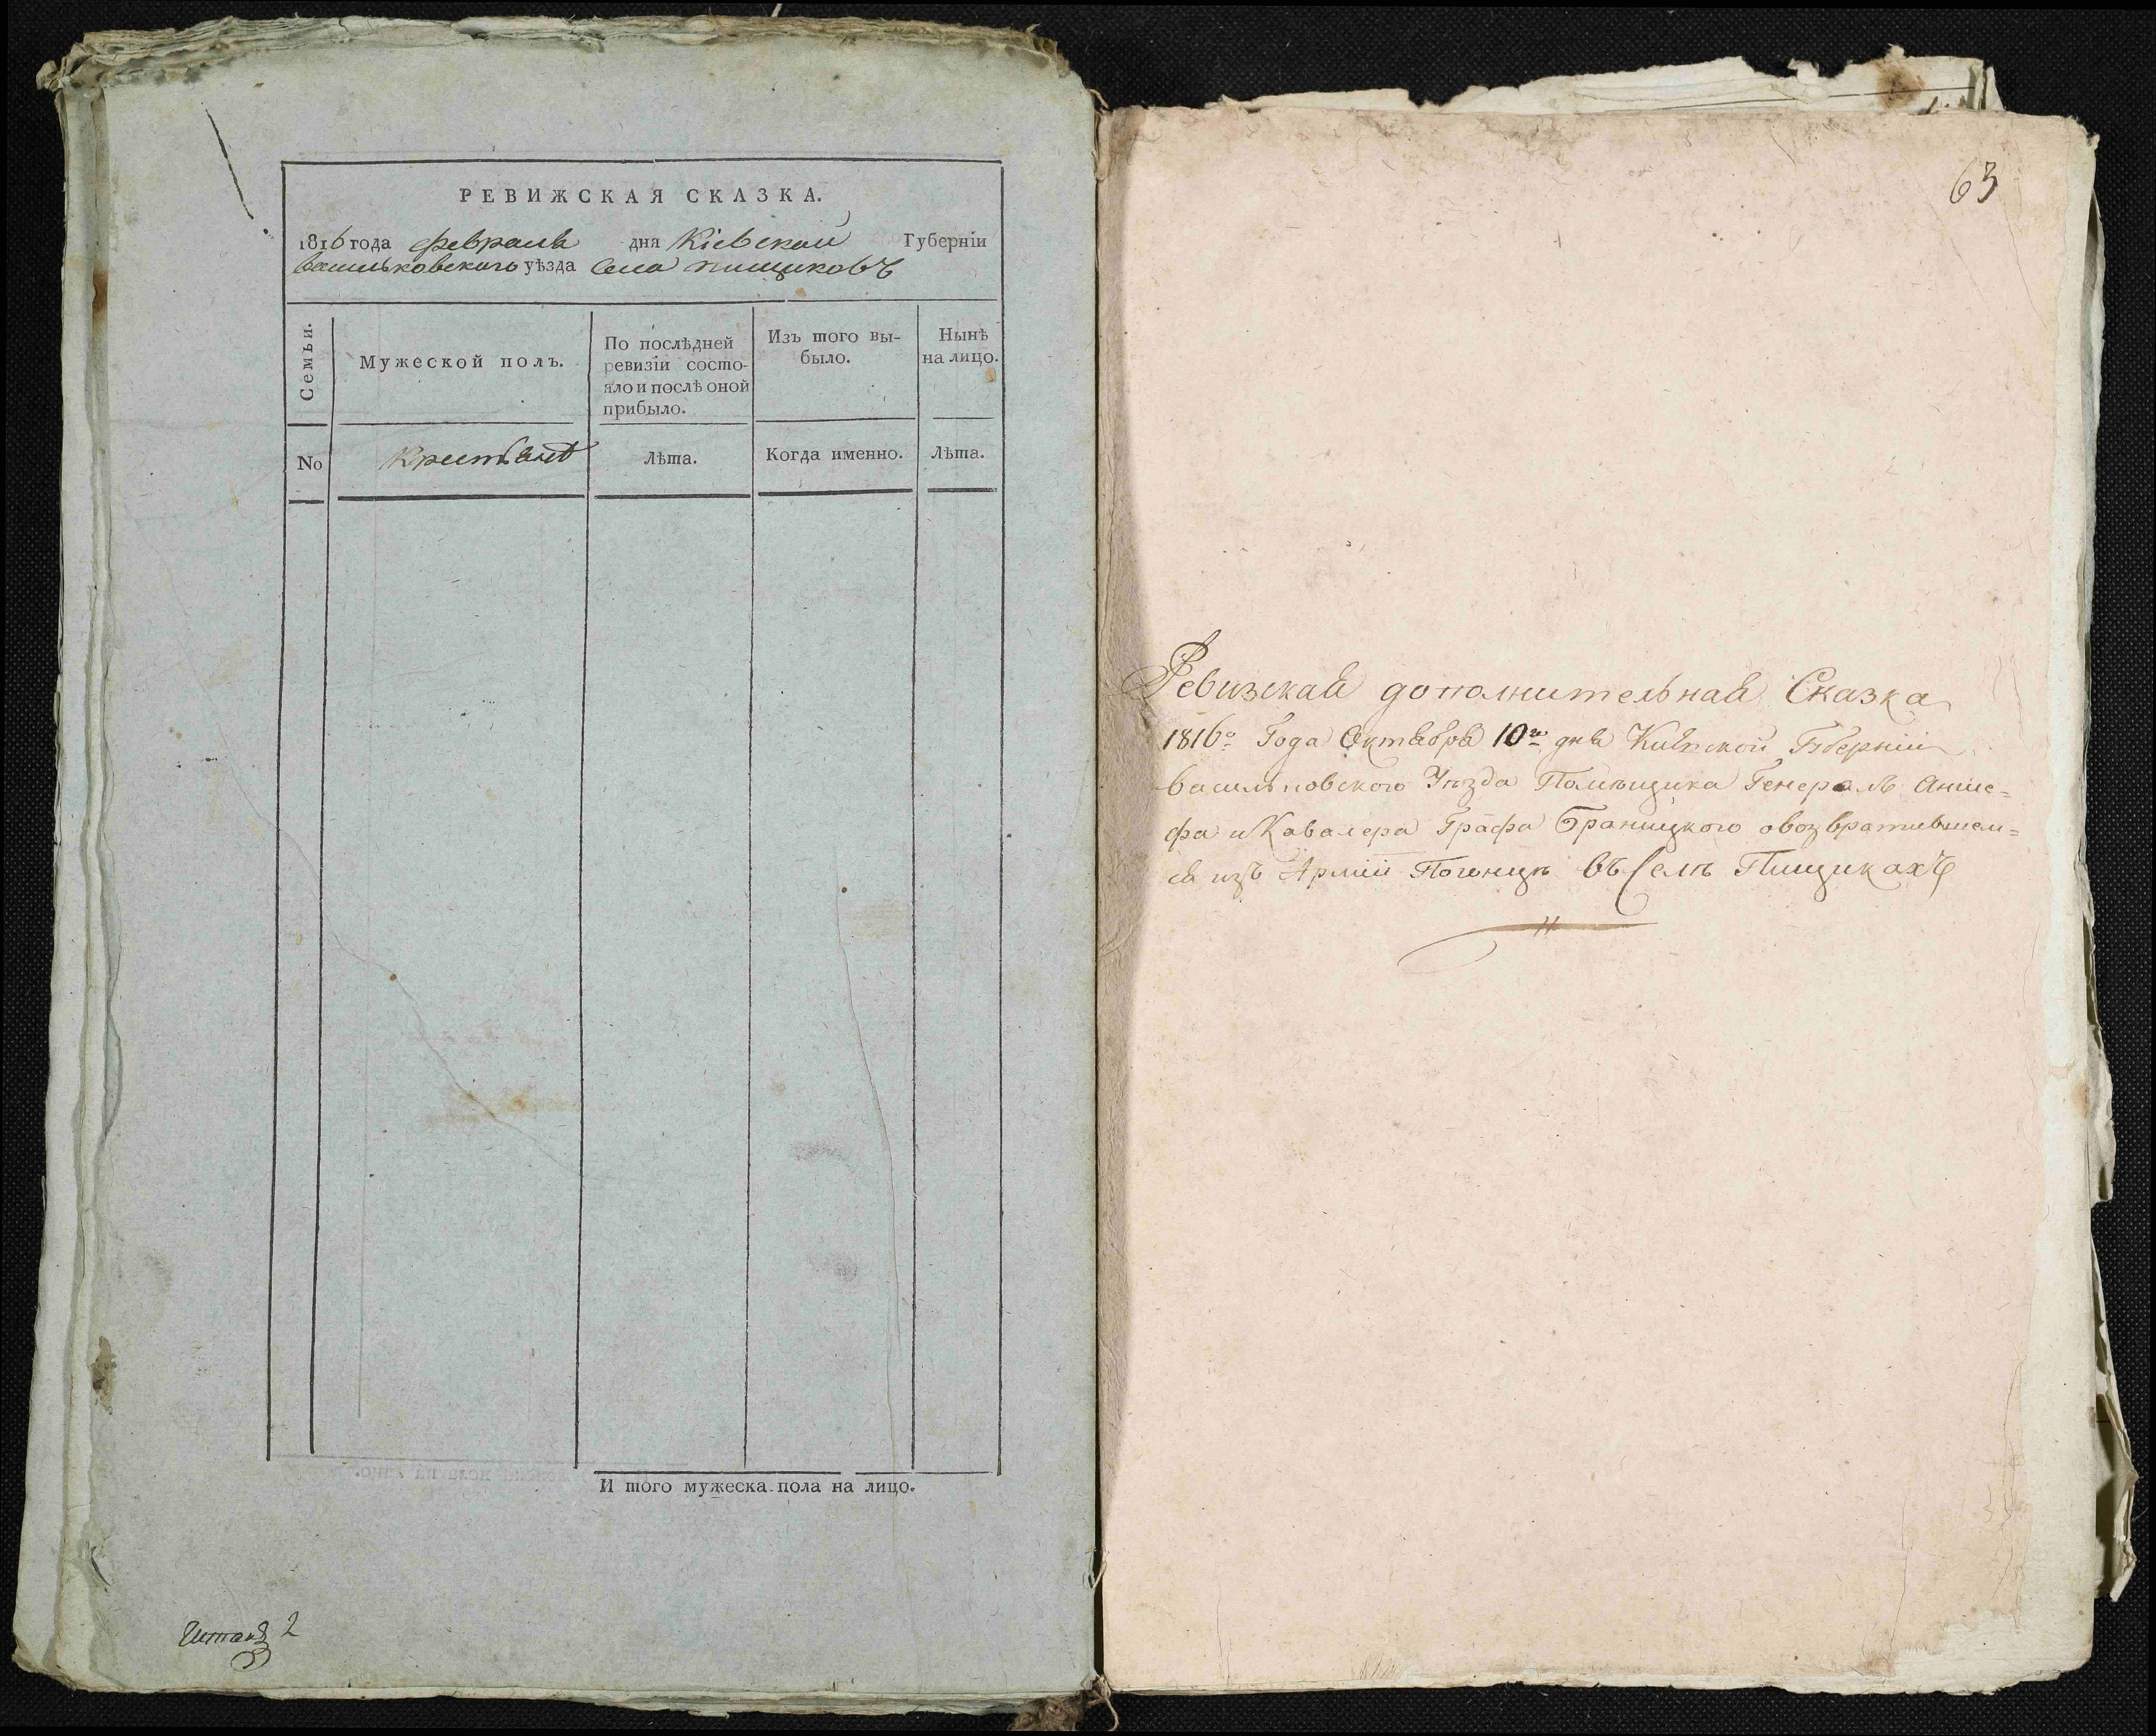 РЕВИЖСКАЯ СКАЗКА.
1816 года февраля дня Кіевской Губерніи
васильковского уѣзда Села пищиковъ
Семьи.
Мужеской полъ.
По послѣдней
ревизіи состо-
яло и послѣ оной
прибыло.
Изъ того вы-
было.
Нынѣ
на лицо.
No
Крестьянѣ
Лѣта.
Когда именно.
Лѣта.
И того мужеска пола на лицо.
Читалъ 2
63
Ревизская дополнительная Сказка
1816го Года Октября 10го дня Киевской Губернии
васильковского Уѣзда Помѣщика Генералъ Анше=
фа и Кавалера Графа Браницкого овозвратившем=
ся изъ Армии Погонцѣ въ Селѣ Пищикахъ